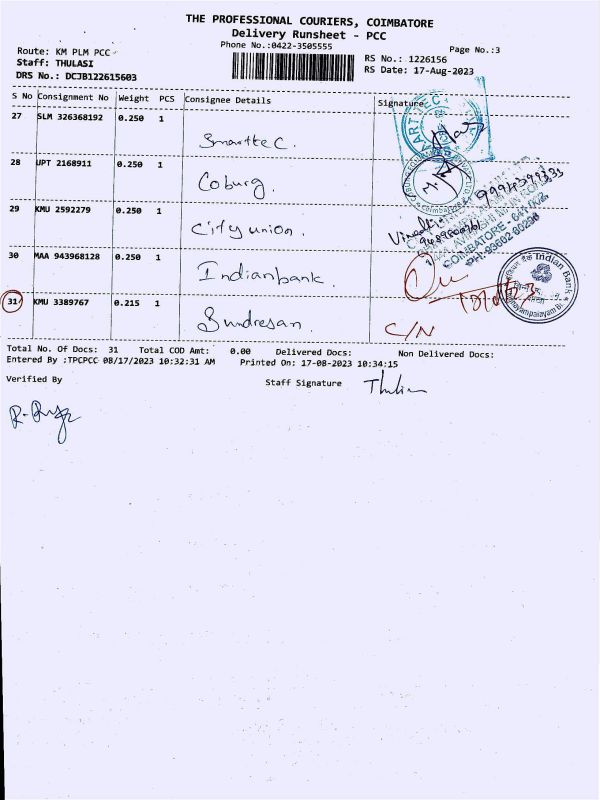 THE PROFESSIONAL COURIERS, COIMBATORE
Delivery Runsheet - PCC
Phone No.:0422-3505555
Page No.:3
Route: KM PLM PCC
RS No.: 1226156
Staff: THULASI
RS Date: 17-Aug-2023
DRS No.: DCJB122615603
S No Consignment No Weight PCS Consignee Details Signature
27 SLM 326368192 0.250 1
Smarttec.
28 UPT 2168911 0.250 1
Coburg.
29 KMU 2592279 0.250 1
City union.
9994399333
COIMBATORE - 641 008
30 MAA 943968128 0.250 1
Indianbank.
Indian Bank
31 KMU 3389767 0.215 1
Sundresan.
C/N
Total No. Of Docs: 31 Total COD Amt: 0.00 Delivered Docs: Non Delivered Docs:
Entered By :TPCPCC 08/17/2023 10:32:31 AM Printed On: 17-08-2023 10:34:15
Verified By
Staff Signature